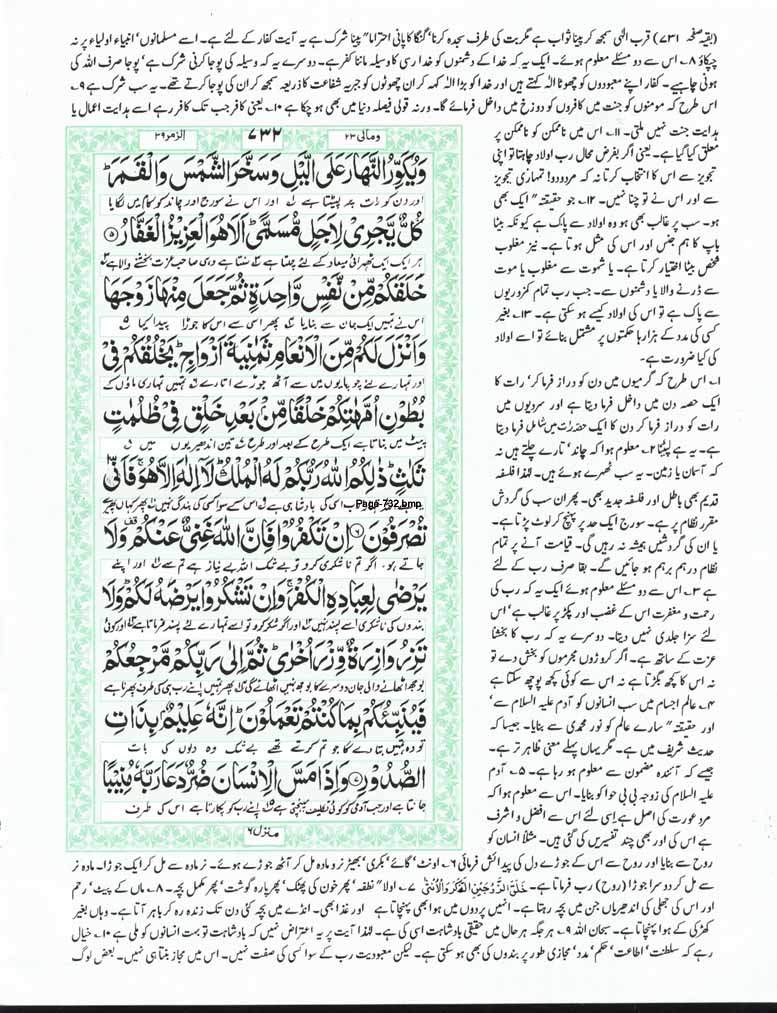 (بقیہ صفحہ ۷۳۱) قرب الٰہی سمجھ کر پینا ثواب ہے مگر بت کی طرف سجدہ کرنا' گنگا کا پانی احتراما" پینا شرک ہے یہ آیت کفار کے لئے ہے۔ اسے مسلمانوں' انبیاء اولیاء پر نہ
چپکاؤ ۸۔ اس سے دو مسئلے معلوم ہوئے۔ ایک یہ کہ خدا کے دشمنوں کو خدا رسی کا وسیلہ ماننا کفر ہے۔ دوسرے یہ کہ وسیلہ کی پوجا کرنی شرک ہے' پوجا صرف اللہ کی
ہونی چاہیے۔ کفار اپنے معبودوں کو چھوٹا الٰہ کہتے ہیں اور خدا کو بڑا الٰہ کہہ کر ان چھوٹوں کو جبریہ شفاعت کا ذریعہ سمجھ کر ان کی پوجا کرتے تھے۔ یہ سب شرک ہے ۹۔
اس طرح کہ مومنوں کو جنت میں کافروں کو دوزخ میں داخل فرمائے گا۔ ورنہ قولی فیصلہ دنیا میں بھی ہو چکا ہے ۱۰۔ یعنی کافر جب تک کافر رہے اسے ہدایت اعمال یا
ہدایت جنت نہیں ملتی۔ ۱۱۔ اس میں ناممکن کو ناممکن پر
معلق کیا گیا ہے۔ یعنی اگر بفرض محال رب اولاد چاہتا تو اپنی
تجویز سے اس کا انتخاب کرتا نہ کہ مردودو! تمہاری تجویز
سے اور اس نے تو چنا نہیں۔ ۱۲۔ جو حقیقتہ" ایک بھی
ہو۔ سب پر غالب بھی ہو وہ اولاد سے پاک ہے کیونکہ بیٹا
باپ کا ہم جنس اور اس کی مثل ہوتا ہے۔ نیز مغلوب
شخص بیٹا اختیار کرتا ہے۔ یا شہوت سے مغلوب یا موت
سے ڈرنے والا یا دشمنوں سے۔ جب رب تمام کمزوریوں
سے پاک ہے تو اس کی اولاد کیسے ہو سکتی ہے۔ ۱۳۔ بغیر
کسی کی مدد کے ہزارہا حکمتوں پر مشتمل بنائے تو اسے اولاد
کی کیا ضرورت ہے۔
۱۔ اس طرح کہ گرمیوں میں دن کو دراز فرما کر' رات کا
ایک حصہ دن میں داخل فرما دیتا ہے اور سردیوں میں
رات کو دراز فرما کر دن کا ایک حصہ رات میں شامل فرما دیتا
ہے۔ یہ ہے لپیٹنا ۲۔ معلوم ہوا کہ چاند' تارے چلتے ہیں نہ
کہ آسمان یا زمین۔ یہ سب ٹھہرے ہوئے ہیں۔ لہٰذا فلسفہ
قدیم بھی باطل اور فلسفہ جدید بھی۔ پھر ان سب کی گردش
مقرر نظام پر ہے۔ سورج ایک حد پر پہنچ کر لوٹ پڑتا ہے۔
یا ان کی گردشیں ہمیشہ نہ رہیں گی۔ قیامت آنے پر تمام
نظام درہم برہم ہو جائیں گے۔ بقا صرف رب کے لئے
ہے ۳۔ اس سے دو مسئلے معلوم ہوئے ایک یہ کہ رب کی
رحمت و مغفرت اس کے غضب اور پکڑ پر غالب ہے' اس
لئے سزا جلدی نہیں دیتا۔ دوسرے یہ کہ رب کا بخشنا
عزت کے ساتھ ہے۔ اگر کروڑوں مجرموں کو بخش دے تو
نہ اس کا کچھ بگڑتا ہے نہ اس سے کوئی کچھ پوچھ سکتا ہے
۴۔ عالم اجسام میں سب انسانوں کو آدم علیہ السلام سے'
اور حقیقتہ" سارے عالم کو نور محمدی سے بنایا۔ جیسا کہ
حدیث شریف میں ہے۔ مگر یہاں پہلے معنی ظاہر تر ہے۔
جیسے کہ آئندہ مضمون سے معلوم ہو رہا ہے۔ ۵۔ آدم
علیہ السلام کی زوجہ بی بی حوا کو بنایا۔ اس سے معلوم ہوا کہ
مرد عورت کی اصل ہے اسی لئے اس سے افضل و اشرف
ہے اس کی اور بھی چند تفسیریں کی گئی ہیں۔ مثلاً انسان کو
ومالی ۲۳
۷۳۲
الزمر ۳۹
وَيُكَوِّرُ النَّهَارَ عَلَى الَّيْلِ وَسَخَّرَ الشَّمْسَ وَالْقَمَرَ
اور دن کو رات پر لپیٹتا ہے اور اس نے سورج اور چاند کو کام میں لگایا
كُلٌّ يَّجْرِيْ لِاَجَلٍ مُّسَمًّى اَلَا هُوَ الْعَزِيْزُ الْغَفَّارُ ۵
ہر ایک ایک ٹھہرائی میعاد کے لئے چلتا ہے سنتا ہے وہی صاحب عزت بخشنے والا ہے
خَلَقَكُمْ مِّنْ نَّفْسٍ وَّاحِدَةٍ ثُمَّ جَعَلَ مِنْهَا زَوْجَهَا
اس نے تمہیں ایک جان سے بنایا پھر اسی سے اس کا جوڑا پیدا کیا
وَاَنْزَلَ لَكُمْ مِّنَ الْاَنْعَامِ ثَمٰنِيَةَ اَزْوَاجٍ يَخْلُقُكُمْ فِيْ
اور تمہارے لئے چوپایوں میں سے آٹھ جوڑے اتارے تمہیں تمہاری ماؤں کے
بُطُوْنِ اُمَّهٰتِكُمْ خَلْقًا مِّنْ بَعْدِ خَلْقٍ فِيْ ظُلُمٰتٍ
پیٹ میں بناتا ہے ایک طرح کے بعد اور طرح تین اندھیریوں میں
ثَلٰثٍ ذٰلِكُمُ اللّٰهُ رَبُّكُمْ لَهُ الْمُلْكُ لَآ اِلٰهَ اِلَّا هُوَ فَاَنّٰى
Page-732.bmp
اسی کی بادشاہی ہے اس کے سوا کسی کی بندگی نہیں پھر کہاں پھیرے
تُصْرَفُوْنَ ۶ اِنْ تَكْفُرُوْا فَاِنَّ اللّٰهَ غَنِيٌّ عَنْكُمْ وَلَا
جاتے ہو۔ اگر تم ناشکری کرو تو بے شک اللہ بے نیاز ہے تم سے اور اپنے
يَرْضٰى لِعِبَادِهِ الْكُفْرَ وَاِنْ تَشْكُرُوْا يَرْضَهُ لَكُمْ وَلَا
بندوں کی ناشکری اسے پسند نہیں اور اگر شکر کرو تو اسے تمہارے لئے پسند فرماتا ہے اور کوئی
تَزِرُ وَازِرَةٌ وِّزْرَ اُخْرٰى ثُمَّ اِلٰى رَبِّكُمْ مَّرْجِعُكُمْ
بوجھ اٹھانے والی جان دوسرے کا بوجھ نہیں اٹھائے گی پھر تمہیں اپنے رب ہی کی طرف پھرنا ہے
فَيُنَبِّئُكُمْ بِمَا كُنْتُمْ تَعْمَلُوْنَ اِنَّهٗ عَلِيْمٌۢ بِذَاتِ
تو وہ تمہیں بتا دے گا جو تم کرتے تھے بے شک وہ دلوں کی بات
الصُّدُوْرِ ۷ وَاِذَا مَسَّ الْاِنْسَانَ ضُرٌّ دَعَا رَبَّهٗ مُنِيْبًا
جانتا ہے اور جب آدمی کو کوئی تکلیف پہنچتی ہے اپنے رب کو پکارتا ہے اس کی طرف
منزل ۶
روح سے بنایا اور روح سے اس کے جوڑے دل کی پیدائش فرمائی ۶۔ اونٹ' گائے' بکری' بھیڑ نر و مادہ مل کر آٹھ جوڑے ہوئے۔ نر مادہ سے مل کر ایک جوڑا۔ مادہ نر
سے مل کر دوسرا جوڑا (روح) رب فرماتا ہے۔ خَلَقَ الزَّوْجَيْنِ الذَّكَرَ وَالْاُنْثٰى ۷۔ اولا" نطفہ' پھر خون کی پھٹک' پھر پارہ گوشت' پھر مکمل بچہ۔ ۸۔ ماں کے پیٹ' رحم
اور اس کی جھلی کی اندھیریاں جن میں بچہ رہتا ہے۔ انہیں پردوں میں ہوا بھی پہنچاتا ہے اور غذا بھی۔ انڈے میں بچہ کئی دن تک زندہ رہ کر باہر آتا ہے۔ وہاں بغیر
کھڑکی کے ہوا پہنچاتا ہے۔ سبحان اللہ ۹۔ ہر جگہ ہر حال میں حقیقی بادشاہت اسی کی ہے۔ لہٰذا آیت پر یہ اعتراض نہیں کہ بادشاہت تو بہت انسانوں کو ملی ہے ۱۰۔ خیال
رہے کہ سلطنت' اطاعت' حکم' مدد' مجازی طور پر بندوں کی بھی ہو سکتی ہے۔ لیکن معبودیت رب کے سوا کسی کی صفت نہیں۔ اس میں مجاز بنتا ہی نہیں۔ بعض لوگ